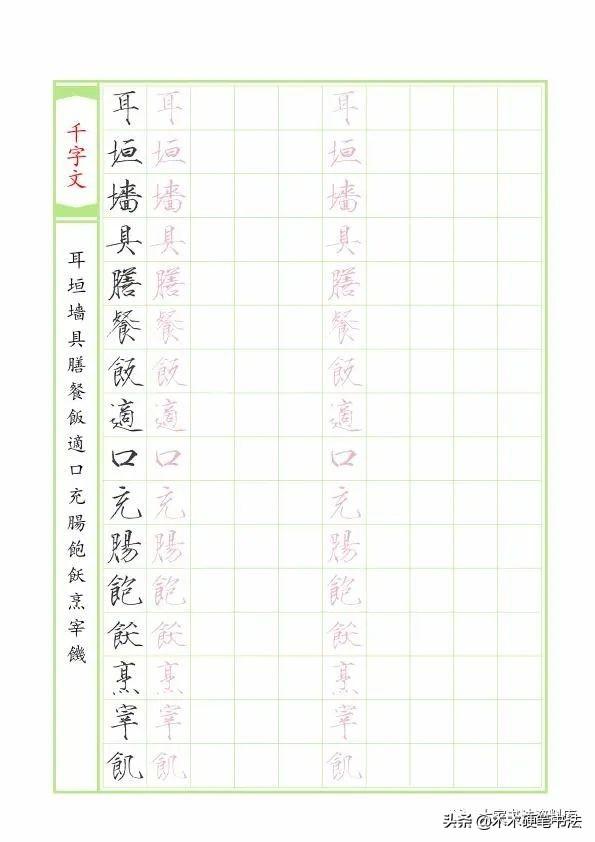 千字文
耳垣墻具膳餐飯適口充腸飽飫烹宰饑
耳垣墻具膳餐飯適口充腸飽飫烹宰飢
耳垣墻具膳餐飯適口充腸飽飫烹宰飢
耳垣墻具膳餐飯適口充腸飽飫烹宰飢
头条 @木木硬笔书法